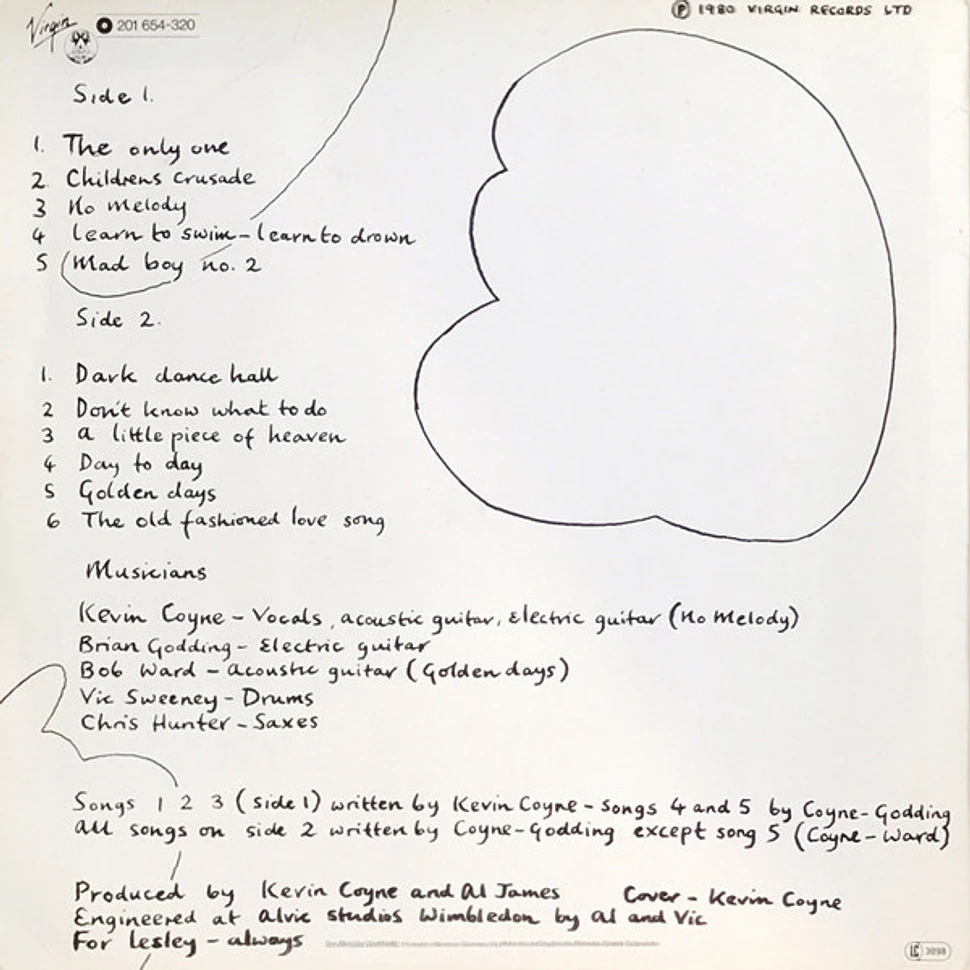 Virgin 201 654-320
℗ 1980 VIRGIN RECORDS LTD
Side 1.
1. The only one
2. Childrens crusade
3 No melody
4 learn to swim - learn to drown
5 Mad boy no. 2
Side 2.
1. Dark dance hall
2 Don't know what to do
3 a little piece of heaven
4 Day to day
5 Golden days
6 The old fashioned love song
Musicians
Kevin Coyne - Vocals, acoustic guitar, Electric guitar (No Melody)
Brian Godding - Electric guitar
Bob Ward - acoustic guitar (Golden days)
Vic Sweeney - Drums
Chris Hunter - Saxes
Songs 1 2 3 (side 1) written by Kevin Coyne - Songs 4 and 5 by Coyne-Godding
all songs on side 2 written by Coyne-Godding except song 5 (Coyne-Ward)
Produced by Kevin Coyne and Al James Cover - Kevin Coyne
Engineered at Alvic studios Wimbledon by Al and Vic
For Lesley - always
LC 3098